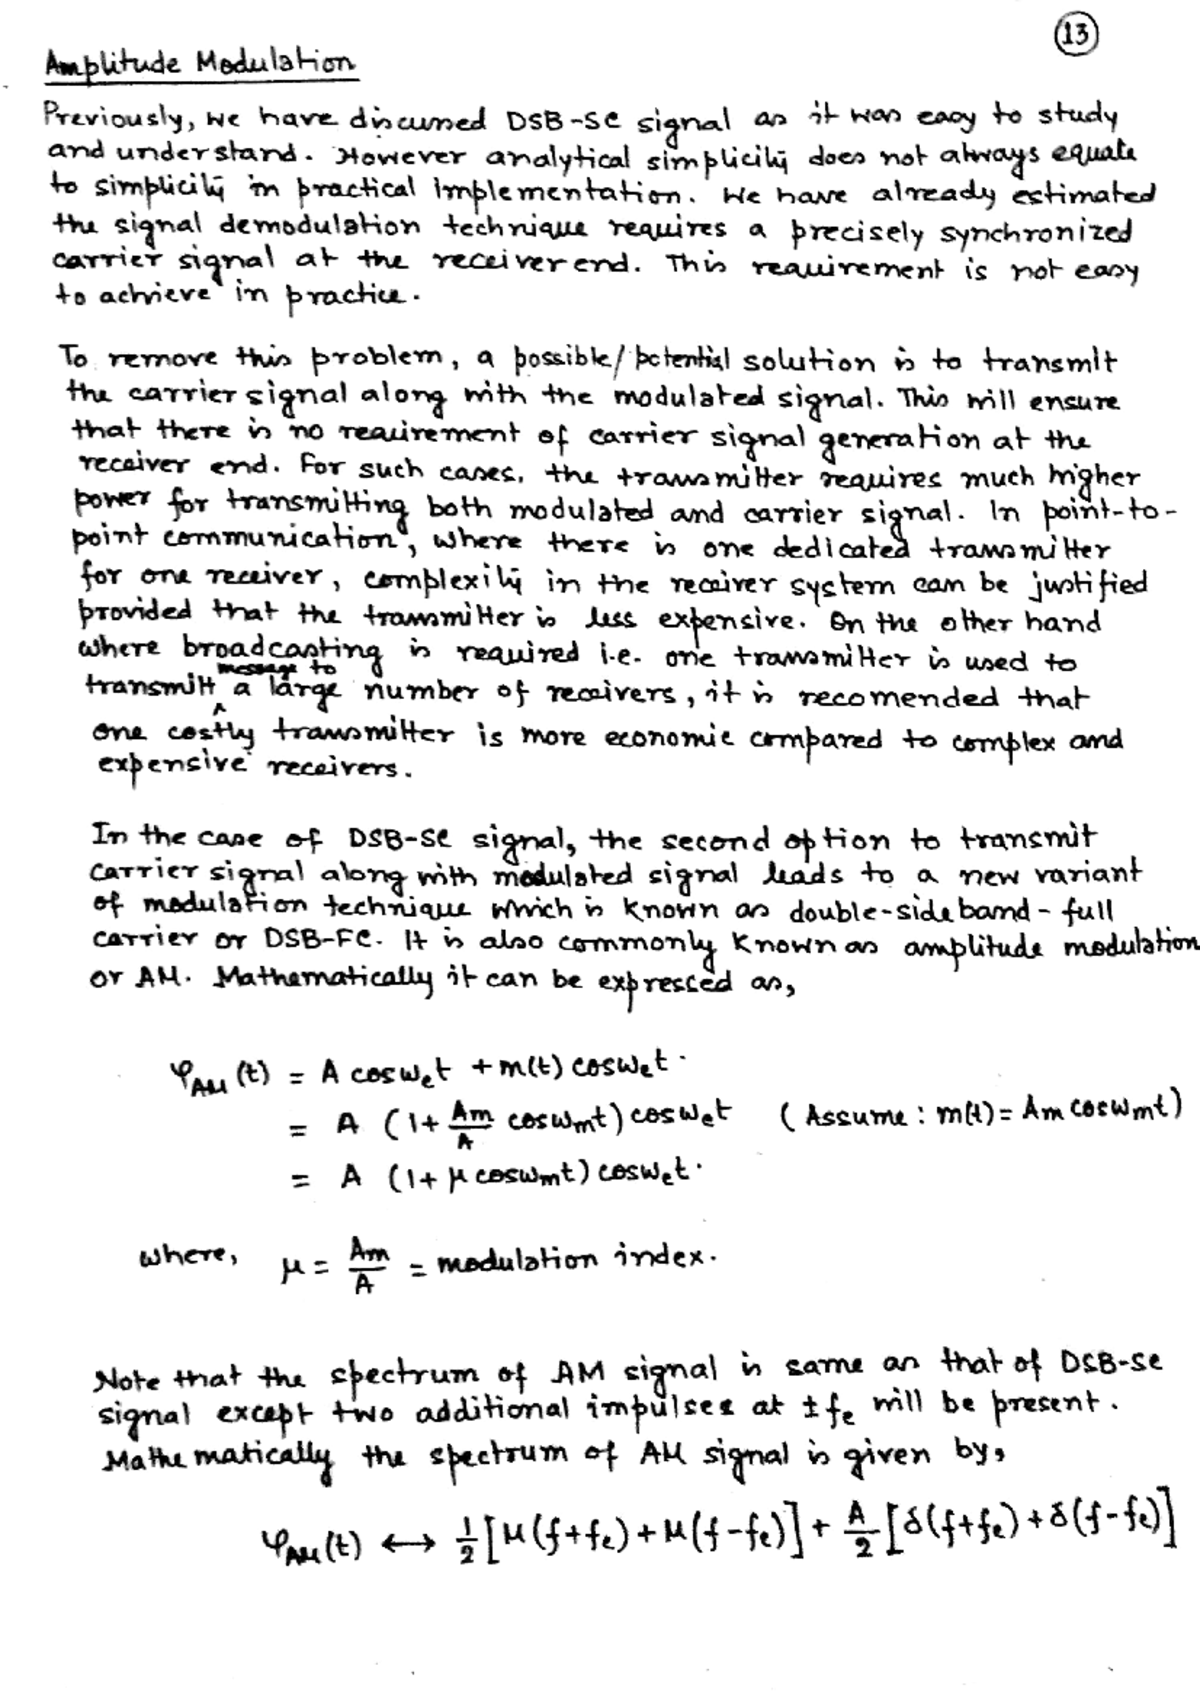 13
Amplitude Modulation
Previously, we have discussed DSB-SC signal as it was easy to study
and understand. However analytical simplicity does not always equate
to simplicity in practical implementation. We have already estimated
the signal demodulation technique requires a precisely synchronized
carrier signal at the receiver end. This requirement is not easy
to achieve in practice.
To remove this problem, a possible/potential solution is to transmit
the carrier signal along with the modulated signal. This will ensure
that there is no requirement of carrier signal generation at the
receiver end. For such cases, the transmitter requires much higher
power for transmitting both modulated and carrier signal. In point-to-
point communication, where there is one dedicated transmitter
for one receiver, complexity in the receiver system can be justified
provided that the transmitter is less expensive. On the other hand
where broadcasting is required i.e. one transmitter is used to
transmitt message to a large number of receivers, it is recomended that
one costly transmitter is more economic compared to complex and
expensive receivers.
In the case of DSB-SC signal, the second option to transmit
carrier signal along with modulated signal leads to a new variant
of modulation technique which is known as double-sideband-full
carrier or DSB-FC. It is also commonly known as amplitude modulation
or AM. Mathematically it can be expressed as,
φ_AM(t) = A cosω_ct + m(t) cosω_ct.
= A (1 + Am/A cosω_mt) cosω_ct (Assume: m(t) = Am cosω_mt)
= A (1 + μ cosω_mt) cosω_ct.
where, μ = Am/A = modulation index.
Note that the spectrum of AM signal is same as that of DSB-SC
signal except two additional impulses at ±f_c will be present.
Mathematically the spectrum of AM signal is given by,
φ_AM(t) ↔ 1/2 [M(f+f_c) + M(f-f_c)] + A/2 [δ(f+f_c) + δ(f-f_c)]